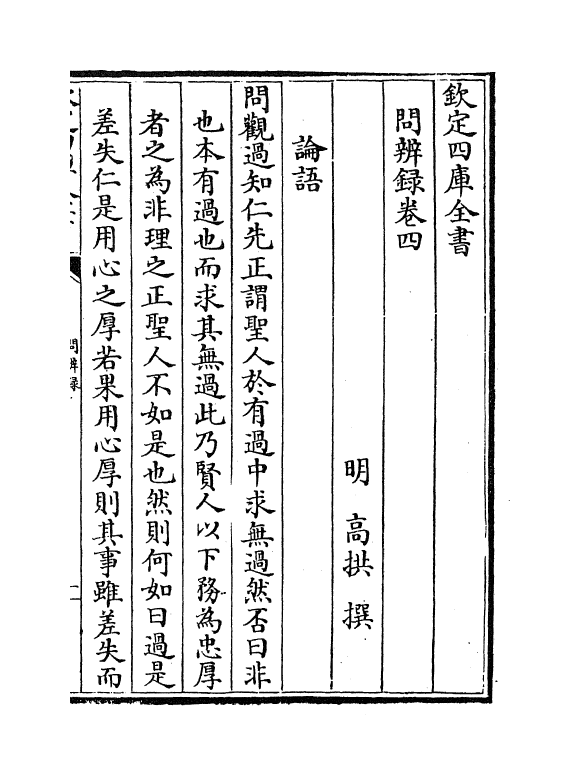 欽定四庫全書
問辨録卷四
明 高拱 撰
論語
問觀過知仁先正謂聖人於有過中求無過然否曰非
也本有過也而求其無過此乃賢人以下務為忠厚
者之為非理之正聖人不如是也然則何如曰過是
差失仁是用心之厚若果用心厚則其事雖差失而
問辨録